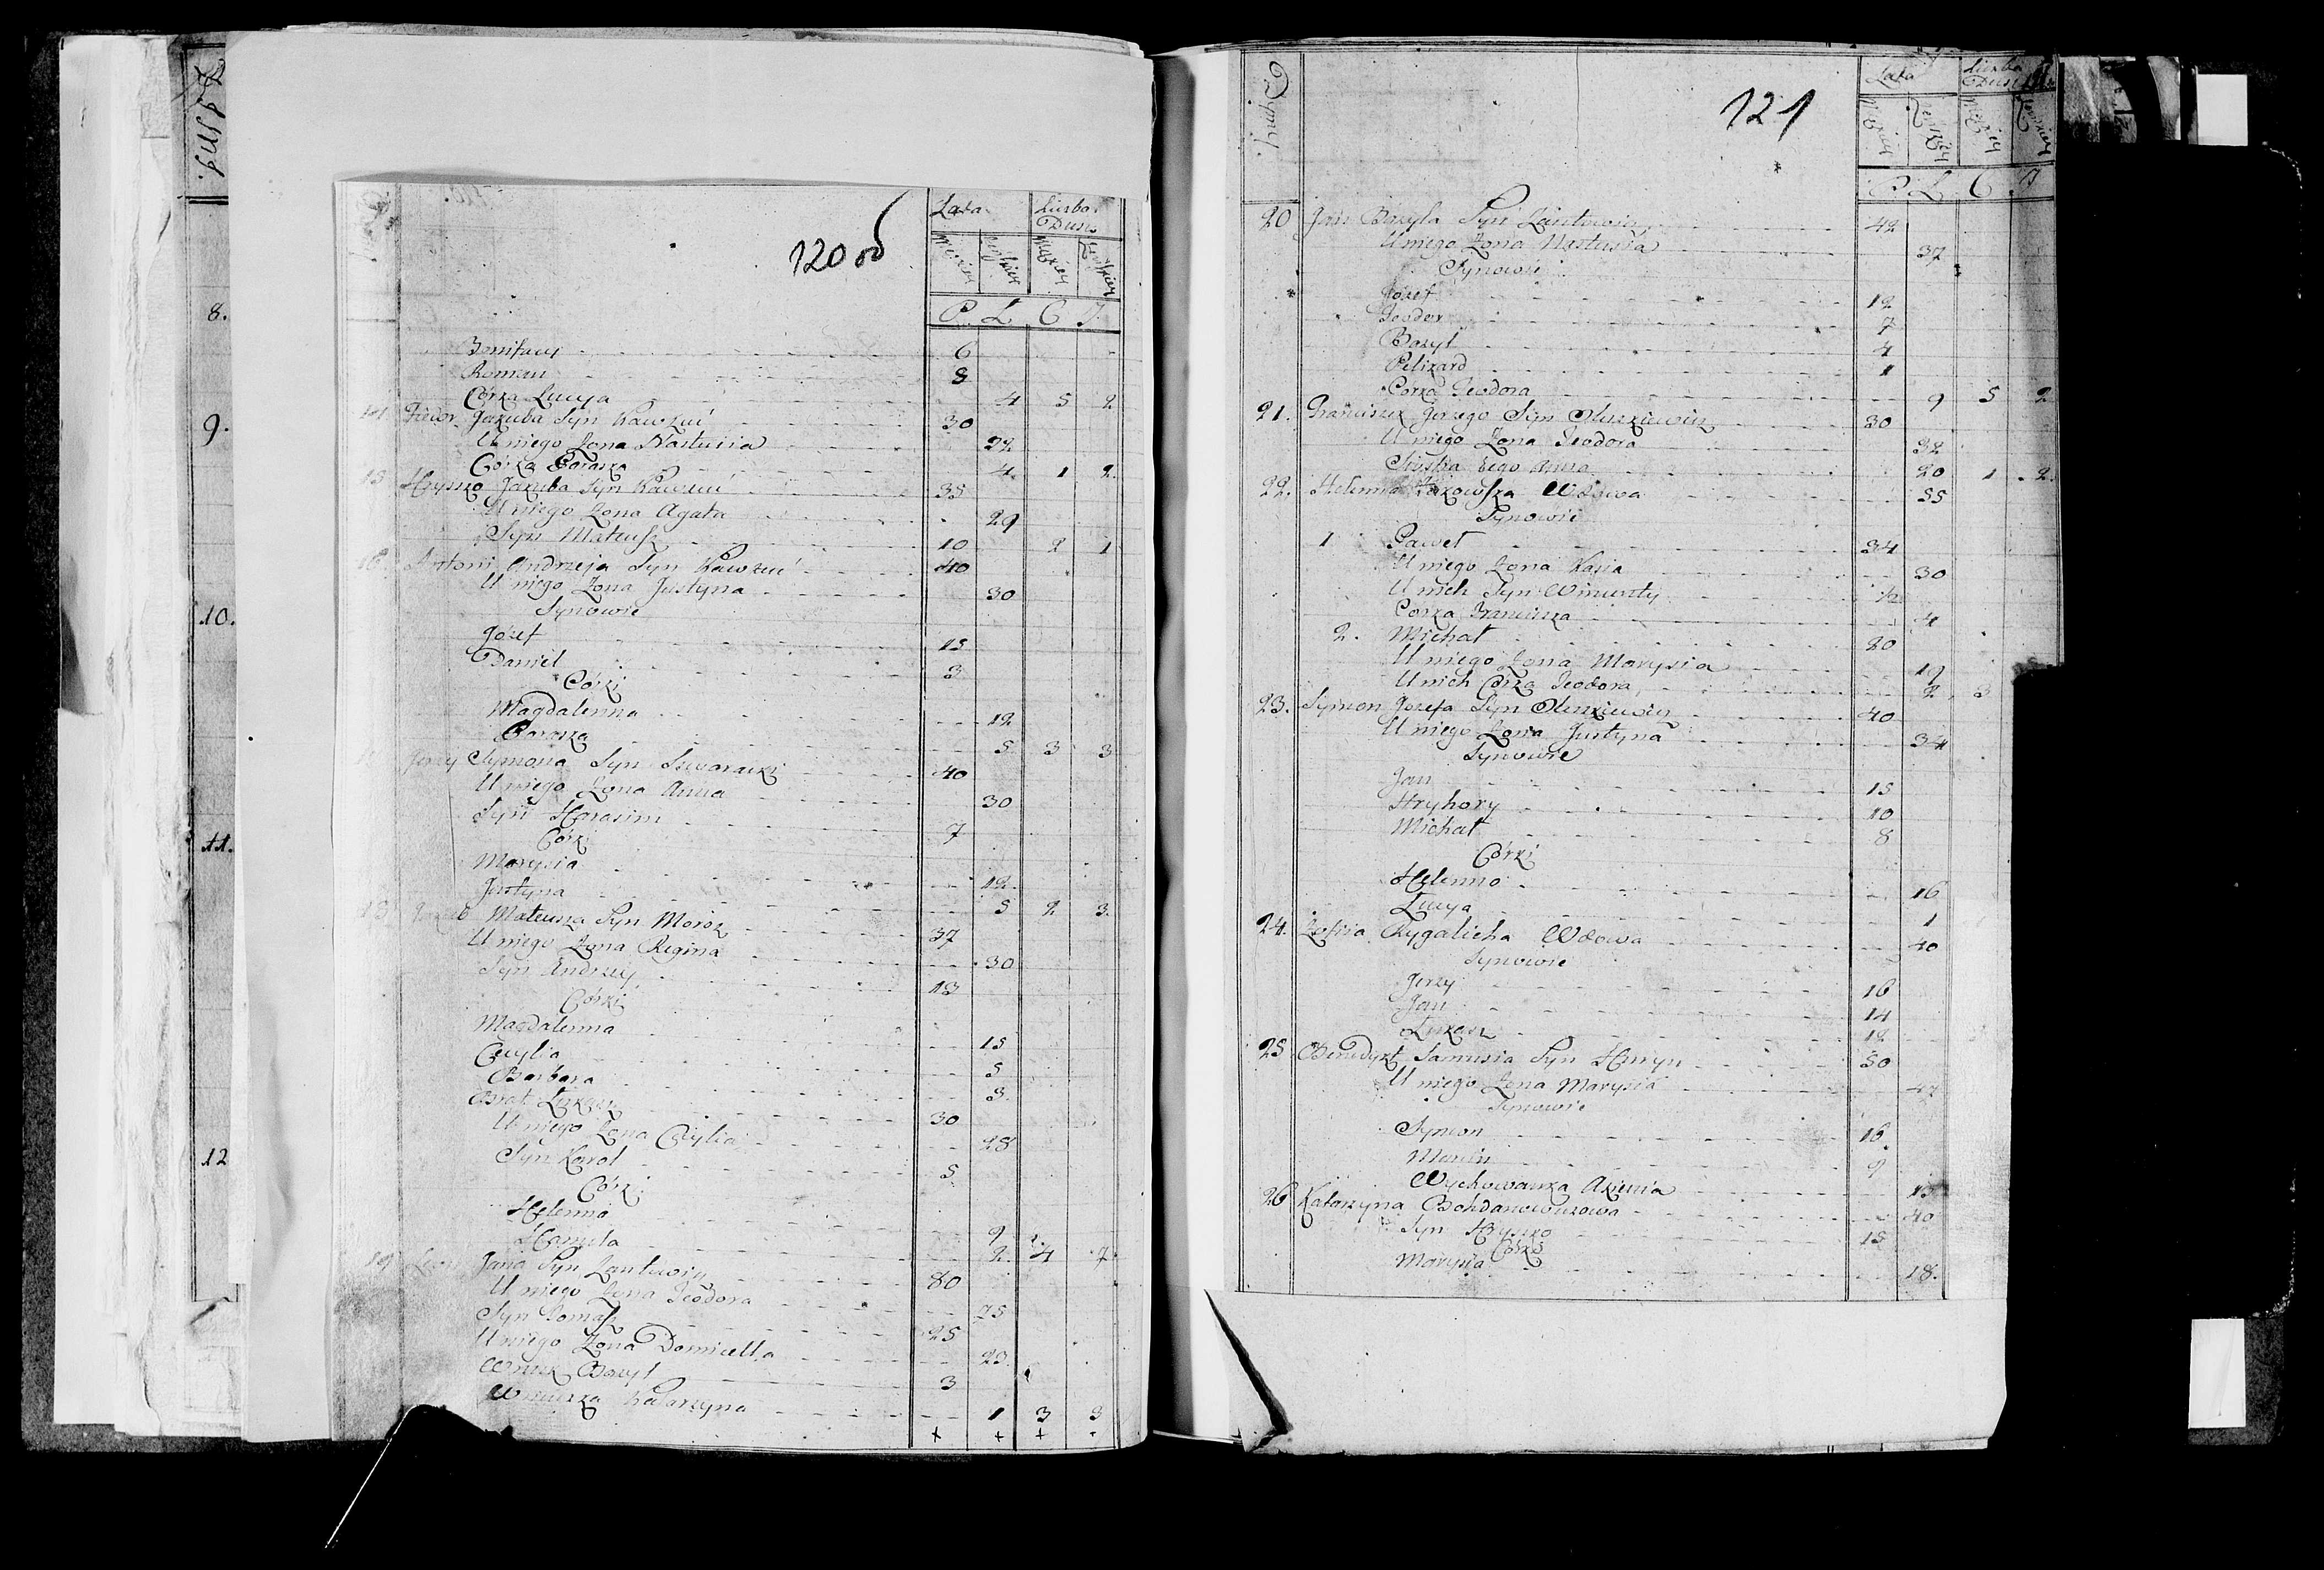 Dymy.
8.
9.
10.
11.
12
120 od
Lata Liczba Dusz
Męzkiey Żeńskiey Męzkiey Żeńskiey
P. L. C. J.
Bonifacy 6
Roman 8
Córka Lucya 4 5 2
14 Fiedor Jakuba Syn Kawzuć 30
U niego Żona Nastusia 22
Córka Paraska 4. 1 2.
15 Hryszko Jakuba Syn Kawzuć 35
U niego Żona Agata 29
Syn Mateusz 10 2 1
16. Antoni Andrzeja Syn Kawzuć 40
U niego Żona Justyna 30
Synowie
Józef 15
Daniel 3
Córki
Magdalenna 12
Paraska 5 3 3
Jerzy Symona Syn 40
U niego Żona Anna 30
Syn Harasim 7
Córki
Marysia 12.
Justyna 5 2 3.
Mateusza Syn Moroz 37
U niego Żona Regina 30
Syn Andrzey 13
Córki
Magdalenna 15
Cecylia 5
Barbara 3.
Brat Łukasz 30
U niego Żona Cecylia 28
Syn Karol 5
Córki
Helenna 9
Hanula 2. 4 7.
19 Leon Jana Syn Lantuwicz 80
U niego Żona Teodora 75
Syn Tomasz 25
U niego Żona Domicella 23.
Wnuk Bazyl 3
Wnuczka Katarzyna 1 3 3
+ + +
Dymy.
121
Lata Liczba Dusz
Męzkiey Żeńskiey Męzkiey Żeńskiey
P. L. C. J
20 Jan Bazyla Syn Lantuwicz 42
U niego Żona Nastusia 37
Synowie
Józef 12
Teodor 7
Bazyl 4
Pelikard 1
Corka Teodora 9 5 2
21. Franciszek Jerzego Syn Oleszkiewicz 30
U niego Żona Teodora 32
Siostra Jego Anna 20 1. 2.
22. Helenna Wdowa 55
Synowie
1 Paweł 34
U niego Żona Kasia 30
U nich Syn Wincenty ½
Corka Franciszka 4
2. Michał 20
U niego Żona Marysia 19
U nich Córka Teodora 2 3
23. Symon Jozefa Syn Oleszkiewicz 40
U niego Żona Justyna 34
Synowie
Jan 15
Hryhory 10
Michał 8
Córki
Helenna 16
Lucya 1
24. Zofiia Rygalicha Wdowa 40
Synowie
Jerzy 16
Jan 14
Łukasz 12
25 Benedykt Samusia Syn Huryn 50
U niego Żona Marysia 47
Synowie
Symon 16.
Marcin 9
Wychowanka Axienia 15
26 Katarzyna Bohdanowiczowa 40
Syn Hryszko 15
Córka
Marysia 18.